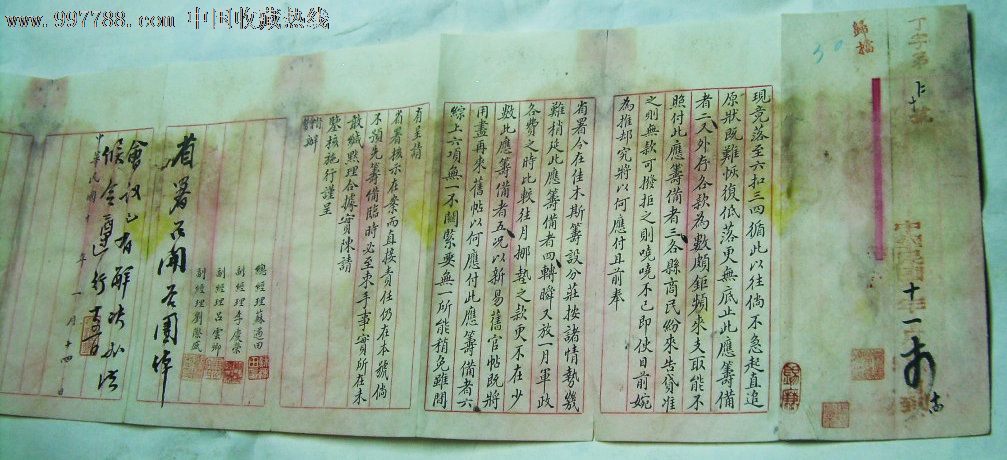 www.997788.com 中国收藏热线
丁字第
歸檔
30
中華民國十一年
到
現竞落至六扣三四循此以往倘不急起直追
原狀既難恢復低落更無底止此應籌備
者二又外存各款為數頗鉅頻來支取能不
照付此應籌備者三各縣商民紛來告貸准
之則無款可撥拒之則嘵嘵不已即使目前婉
為推却究將以何應付且前奉
省署令在佳木斯籌設分莊按諸情勢幾
難稍延此應籌備者四轉瞬又放一月軍政
各費之時比較往月挪墊之款更不在少
數此應籌備者五况以新易舊官帖既將
用盡再來舊帖以何應付此應籌備者六
綜上六項無一不關緊要無一所能稍免雖間
有呈請
省署核示在案而直接責任仍在本號倘
不預先籌備臨時必至束手事實所在未
敢緘默理合據實陳請
鑒核施行謹呈
督辦
會辦
總經理蘇
副經理李慶榮
副經理呂雲卿
副經理劉
省署
會议已有解决办法
候令遵行
中華民國十年一月十四日